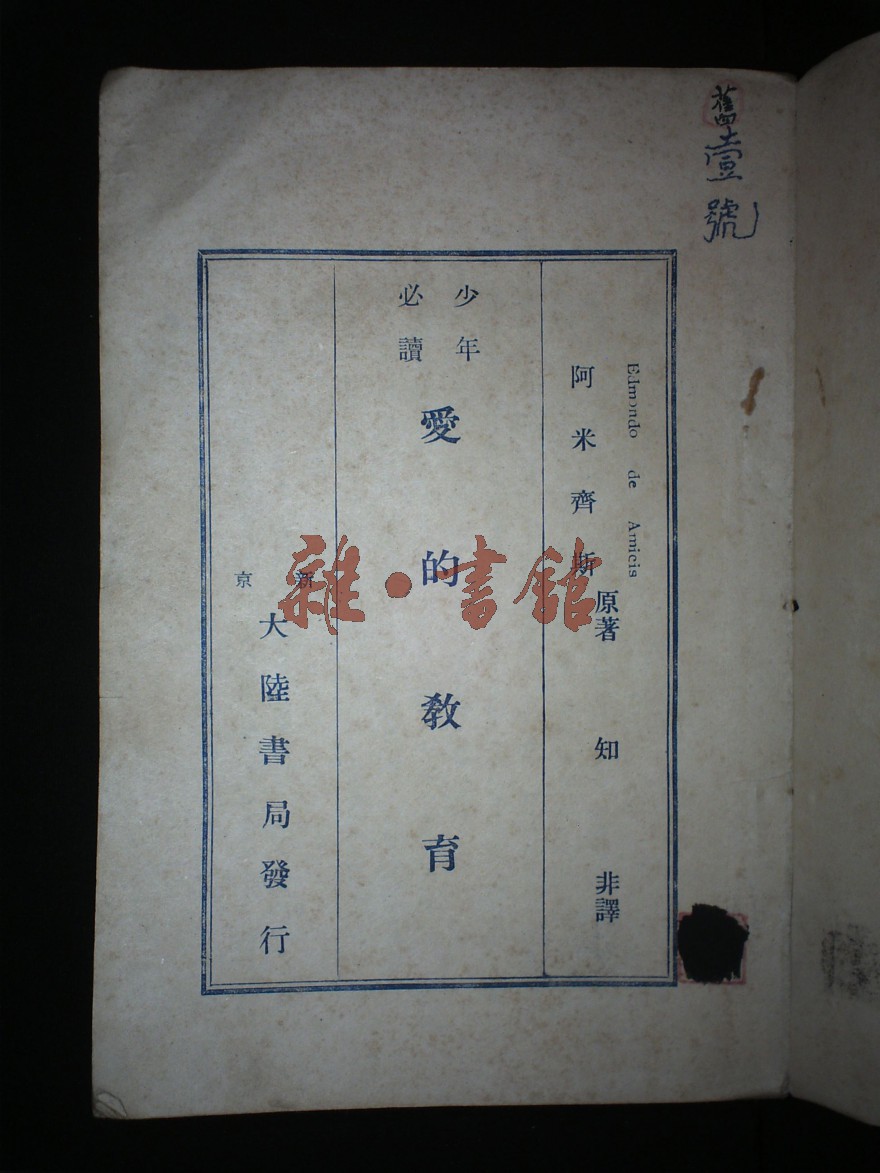 舊壹號
Edmondo de Amicis
阿米齊斯原著 知非譯
少年
必讀
愛的教育
新京
大陸書局發行
雜·書館